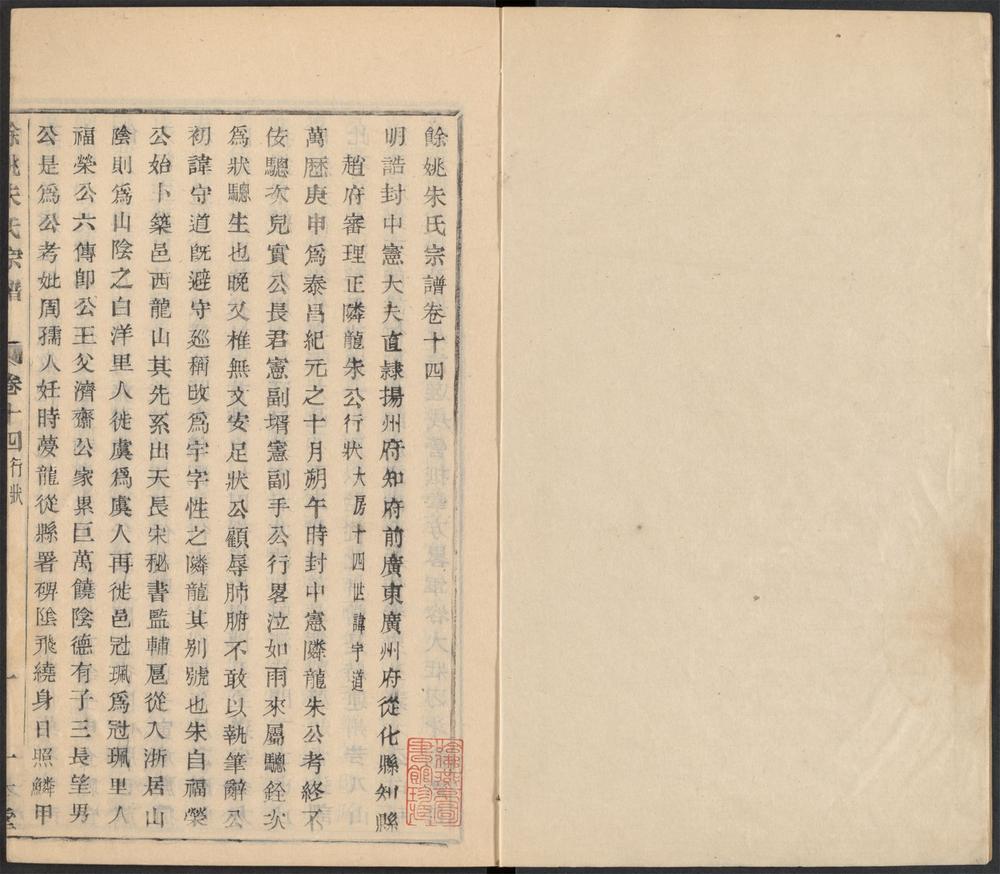 餘姚朱氏宗譜卷十四
明誥封中憲大夫直隷揚州府知府前廣東廣州府從化縣知縣
趙府審理正隣龍朱公行狀大房十四世諱宇道
萬厯庚申爲泰昌紀元之十月朔午時封中憲隣龍朱公考終不
佞驄次兒實公長君憲副壻憲副手公行畧泣如雨來屬驄銓次
爲狀驄生也晚又椎無文安足狀公顧辱肺腑不敢以執筆辭公
初諱守道旣避守廵稱改爲宇字性之隣龍其别號也朱自福榮
公始卜築邑西龍山其先系出天長宋秘書監輔扈從入浙居山
陰則爲山陰之白洋里人徙虞爲虞人再徙邑冠珮爲冠珮里人
福榮公六傳卽公王父濟齋公家累巨萬饒陰德有子三長望男
公是爲公考妣周孺人妊時夢龍從縣署碑陰飛繞身日照鱗甲
餘姚朱氏宗譜 卷十四行狀 一 一本堂